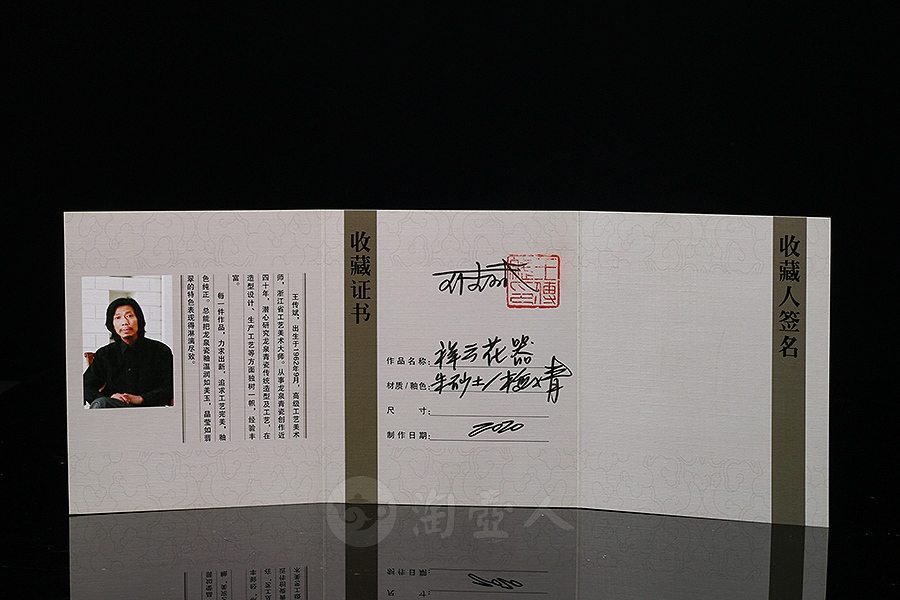 王传斌，出生于1962年9月，高级工艺美术
师，浙江省工艺美术大师。从事龙泉青瓷创作近
四十年，潜心研究龙泉青瓷传统造型及工艺，在
造型设计、生产工艺等方面独树一帜，经验丰
富。
每一件作品，力求出新，追求工艺完美，釉
色纯正。总能把龙泉瓷釉温润如美玉，晶莹如翡
翠的特色表现得淋漓尽致。
收藏证书
作品名称：祥云花器
材质/釉色：朱砂土/梅子青
尺 寸：
制作日期：2020
收藏人签名
淘壶人